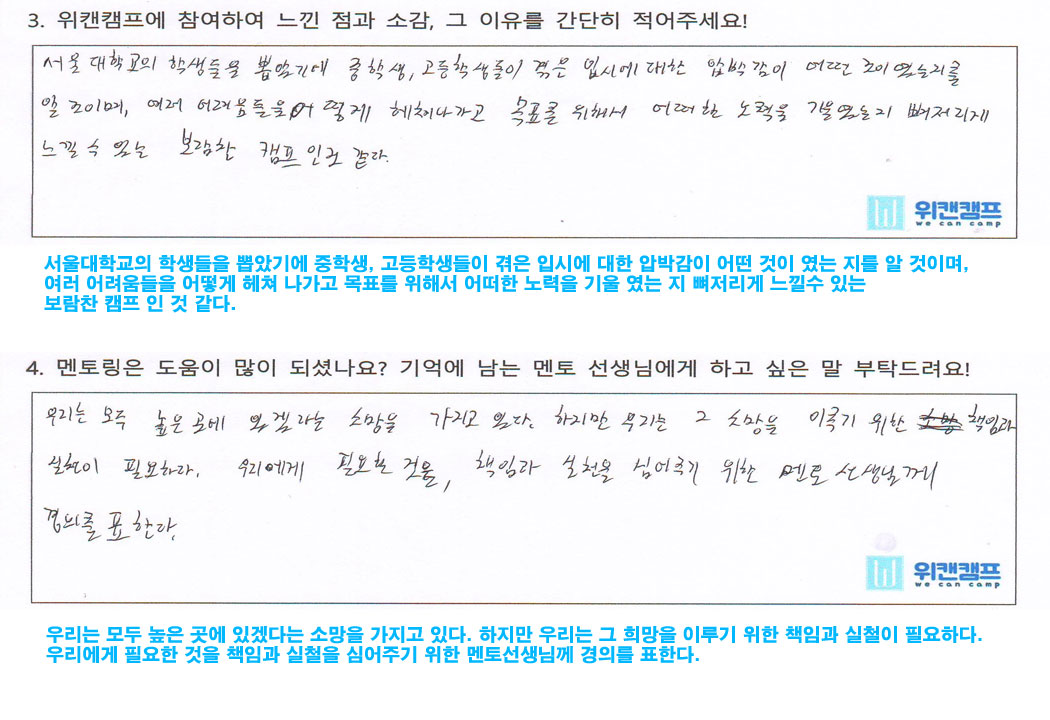 3. 위캔캠프에 참여하여 느낀 점과 소감, 그 이유를 간단히 적어주세요!
서울대학교의 학생들을 뽑았기에 중학생, 고등학생들이 겪은 입시에 대한 압박감이 어떤 것이 였는지를
알 것이며, 여러 어려움들을 어떻게 헤쳐나가고 목표를 위해서 어떠한 노력을 기울였는지 뼈저리게
느낄 수 있는 보람찬 캠프 인 것 같다.
위캔캠프
we can camp
서울대학교의 학생들을 뽑았기에 중학생, 고등학생들이 겪은 입시에 대한 압박감이 어떤 것이 였는 지를 알 것이며,
여러 어려움들을 어떻게 헤쳐 나가고 목표를 위해서 어떠한 노력을 기울 였는 지 뼈저리게 느낄수 있는
보람찬 캠프 인 것 같다.
4. 멘토링은 도움이 많이 되셨나요? 기억에 남는 멘토 선생님에게 하고 싶은 말 부탁드려요!
우리는 모두 높은 곳에 있겠다는 소망을 가지고 있다. 하지만 우리는 그 소망을 이루기 위한 책임과
실천이 필요하다. 우리에게 필요한 것을, 책임과 실천을 심어주기 위한 멘토 선생님께
경의를 표한다.
위캔캠프
we can camp
우리는 모두 높은 곳에 있겠다는 소망을 가지고 있다. 하지만 우리는 그 희망을 이루기 위한 책임과 실철이 필요하다.
우리에게 필요한 것을 책임과 실철을 심어주기 위한 멘토선생님께 경의를 표한다.